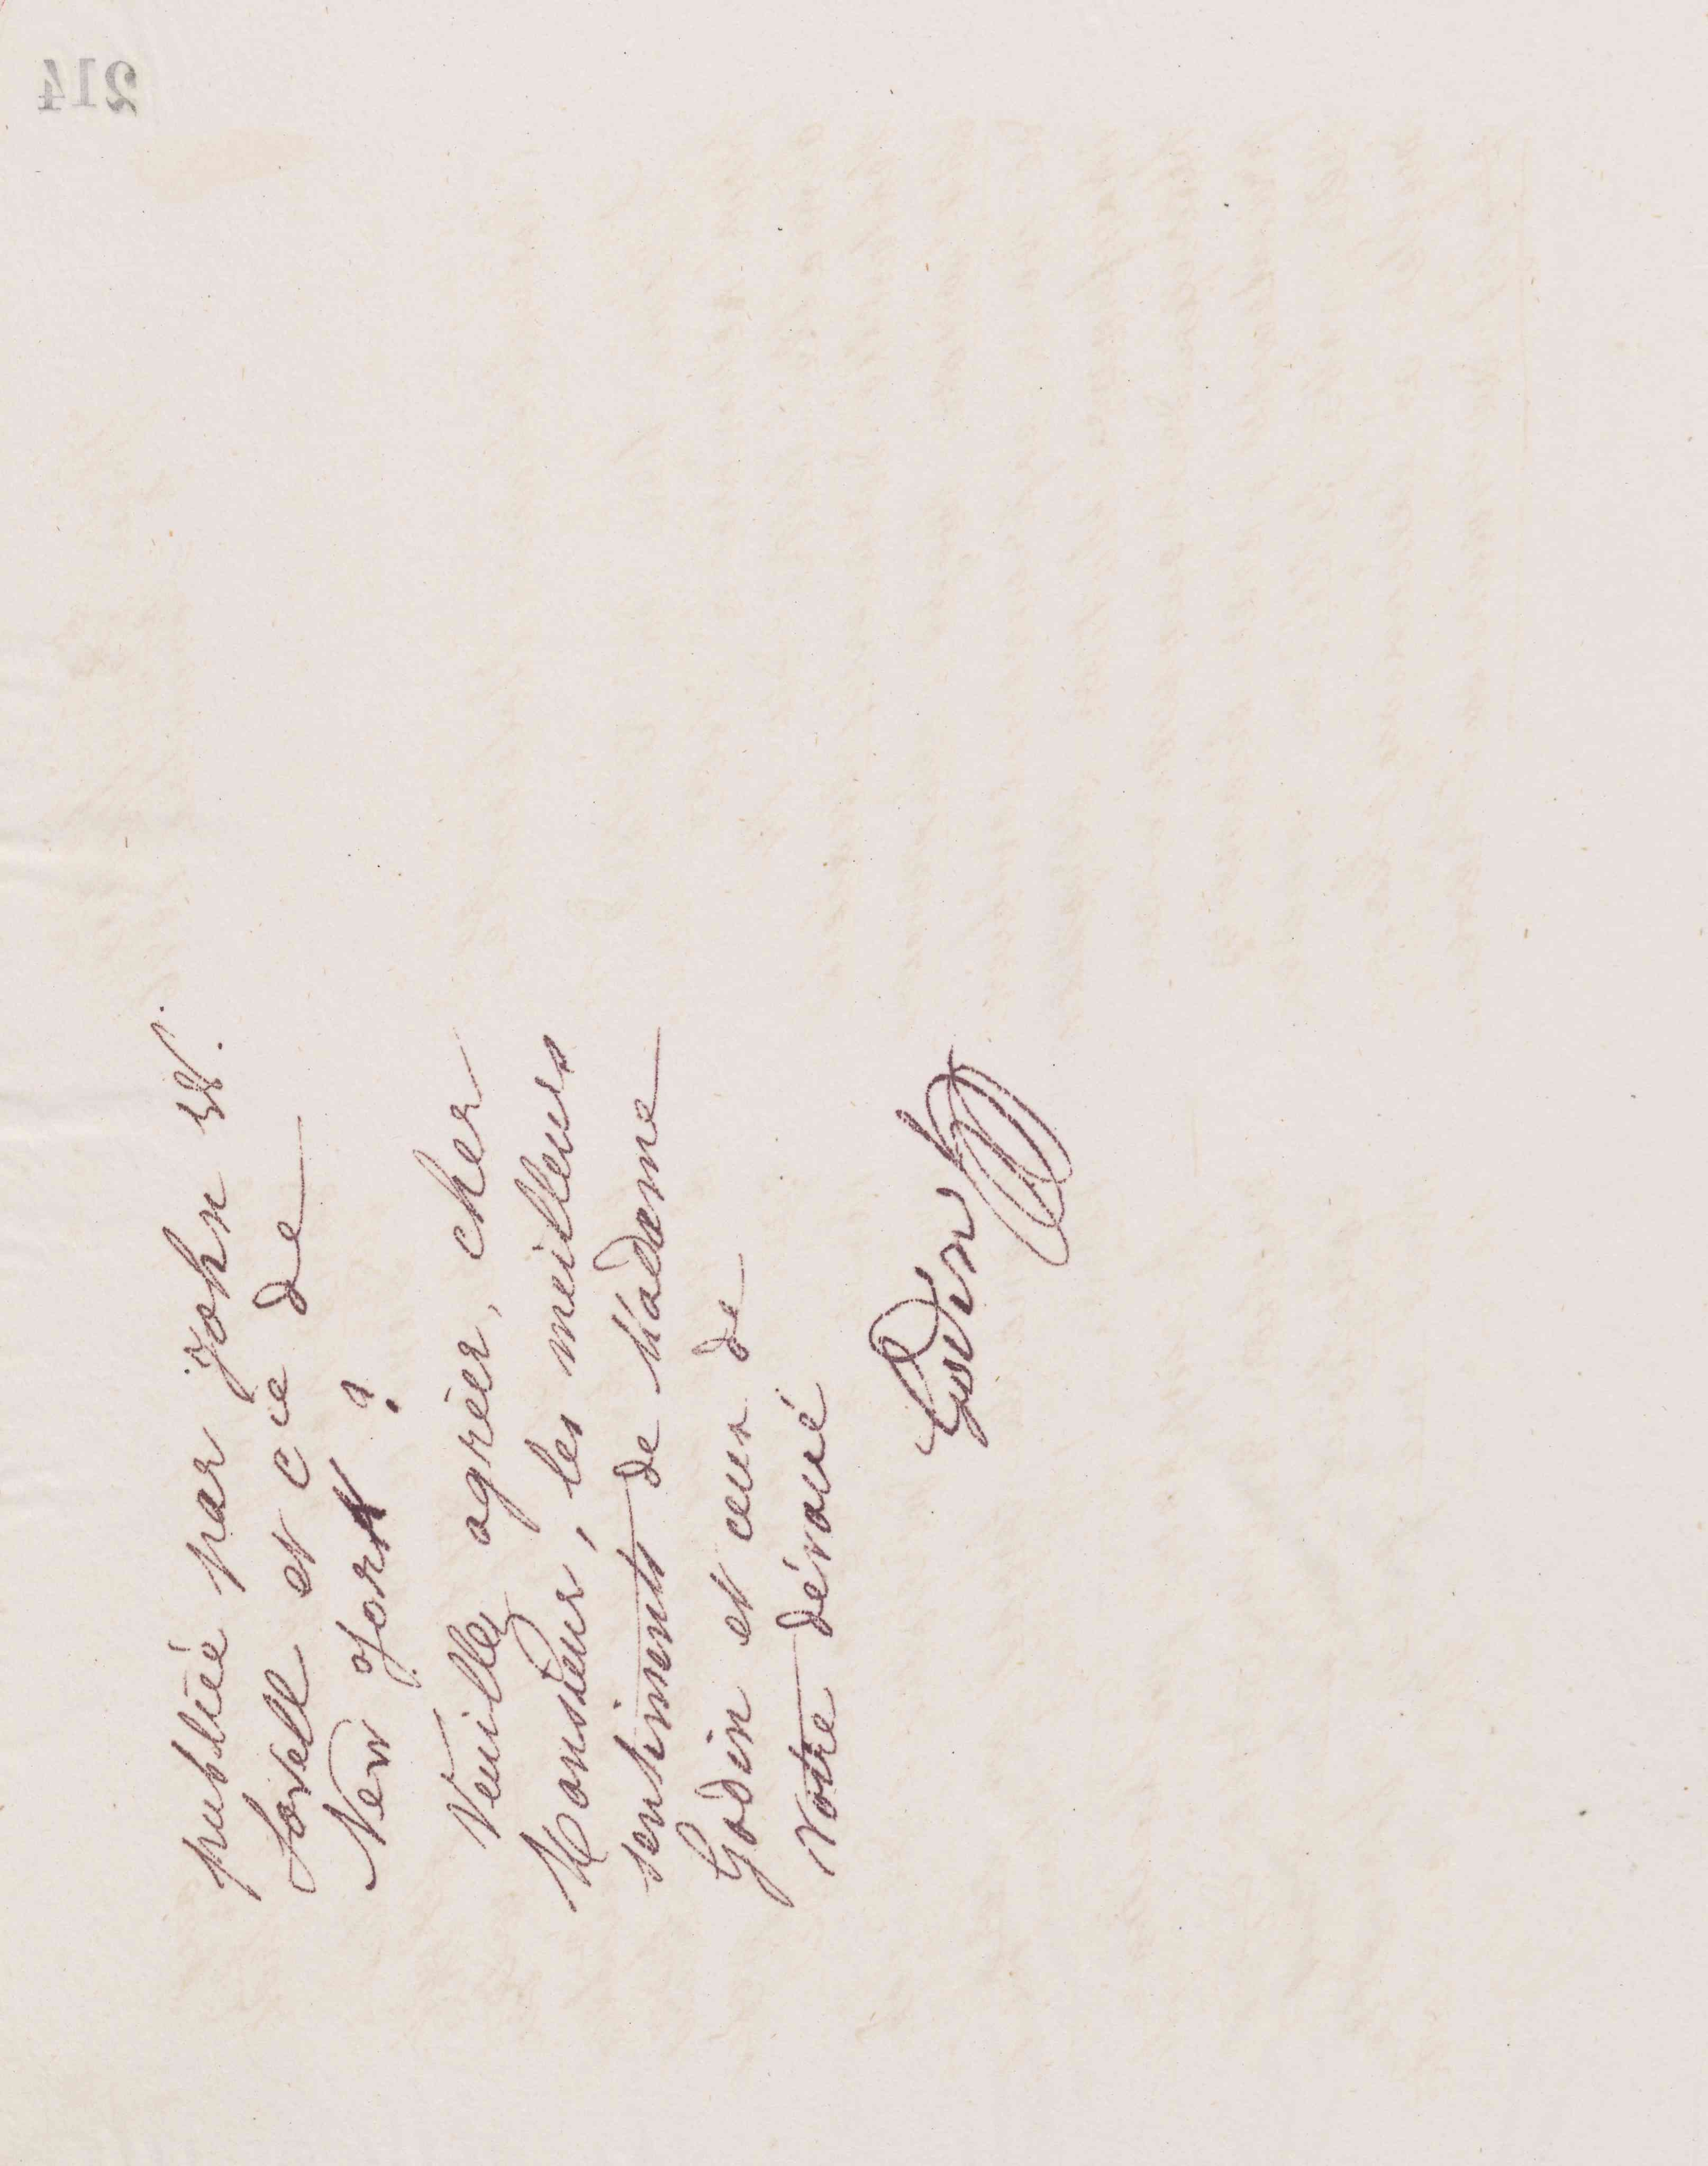 publiée par John W.
Lovell et Cie de
New York ?
Veuillez agréer, cher
Monsieur, les meilleurs
sentiments de Madame
Godin et ceux de
votre dévoué
Godin
214